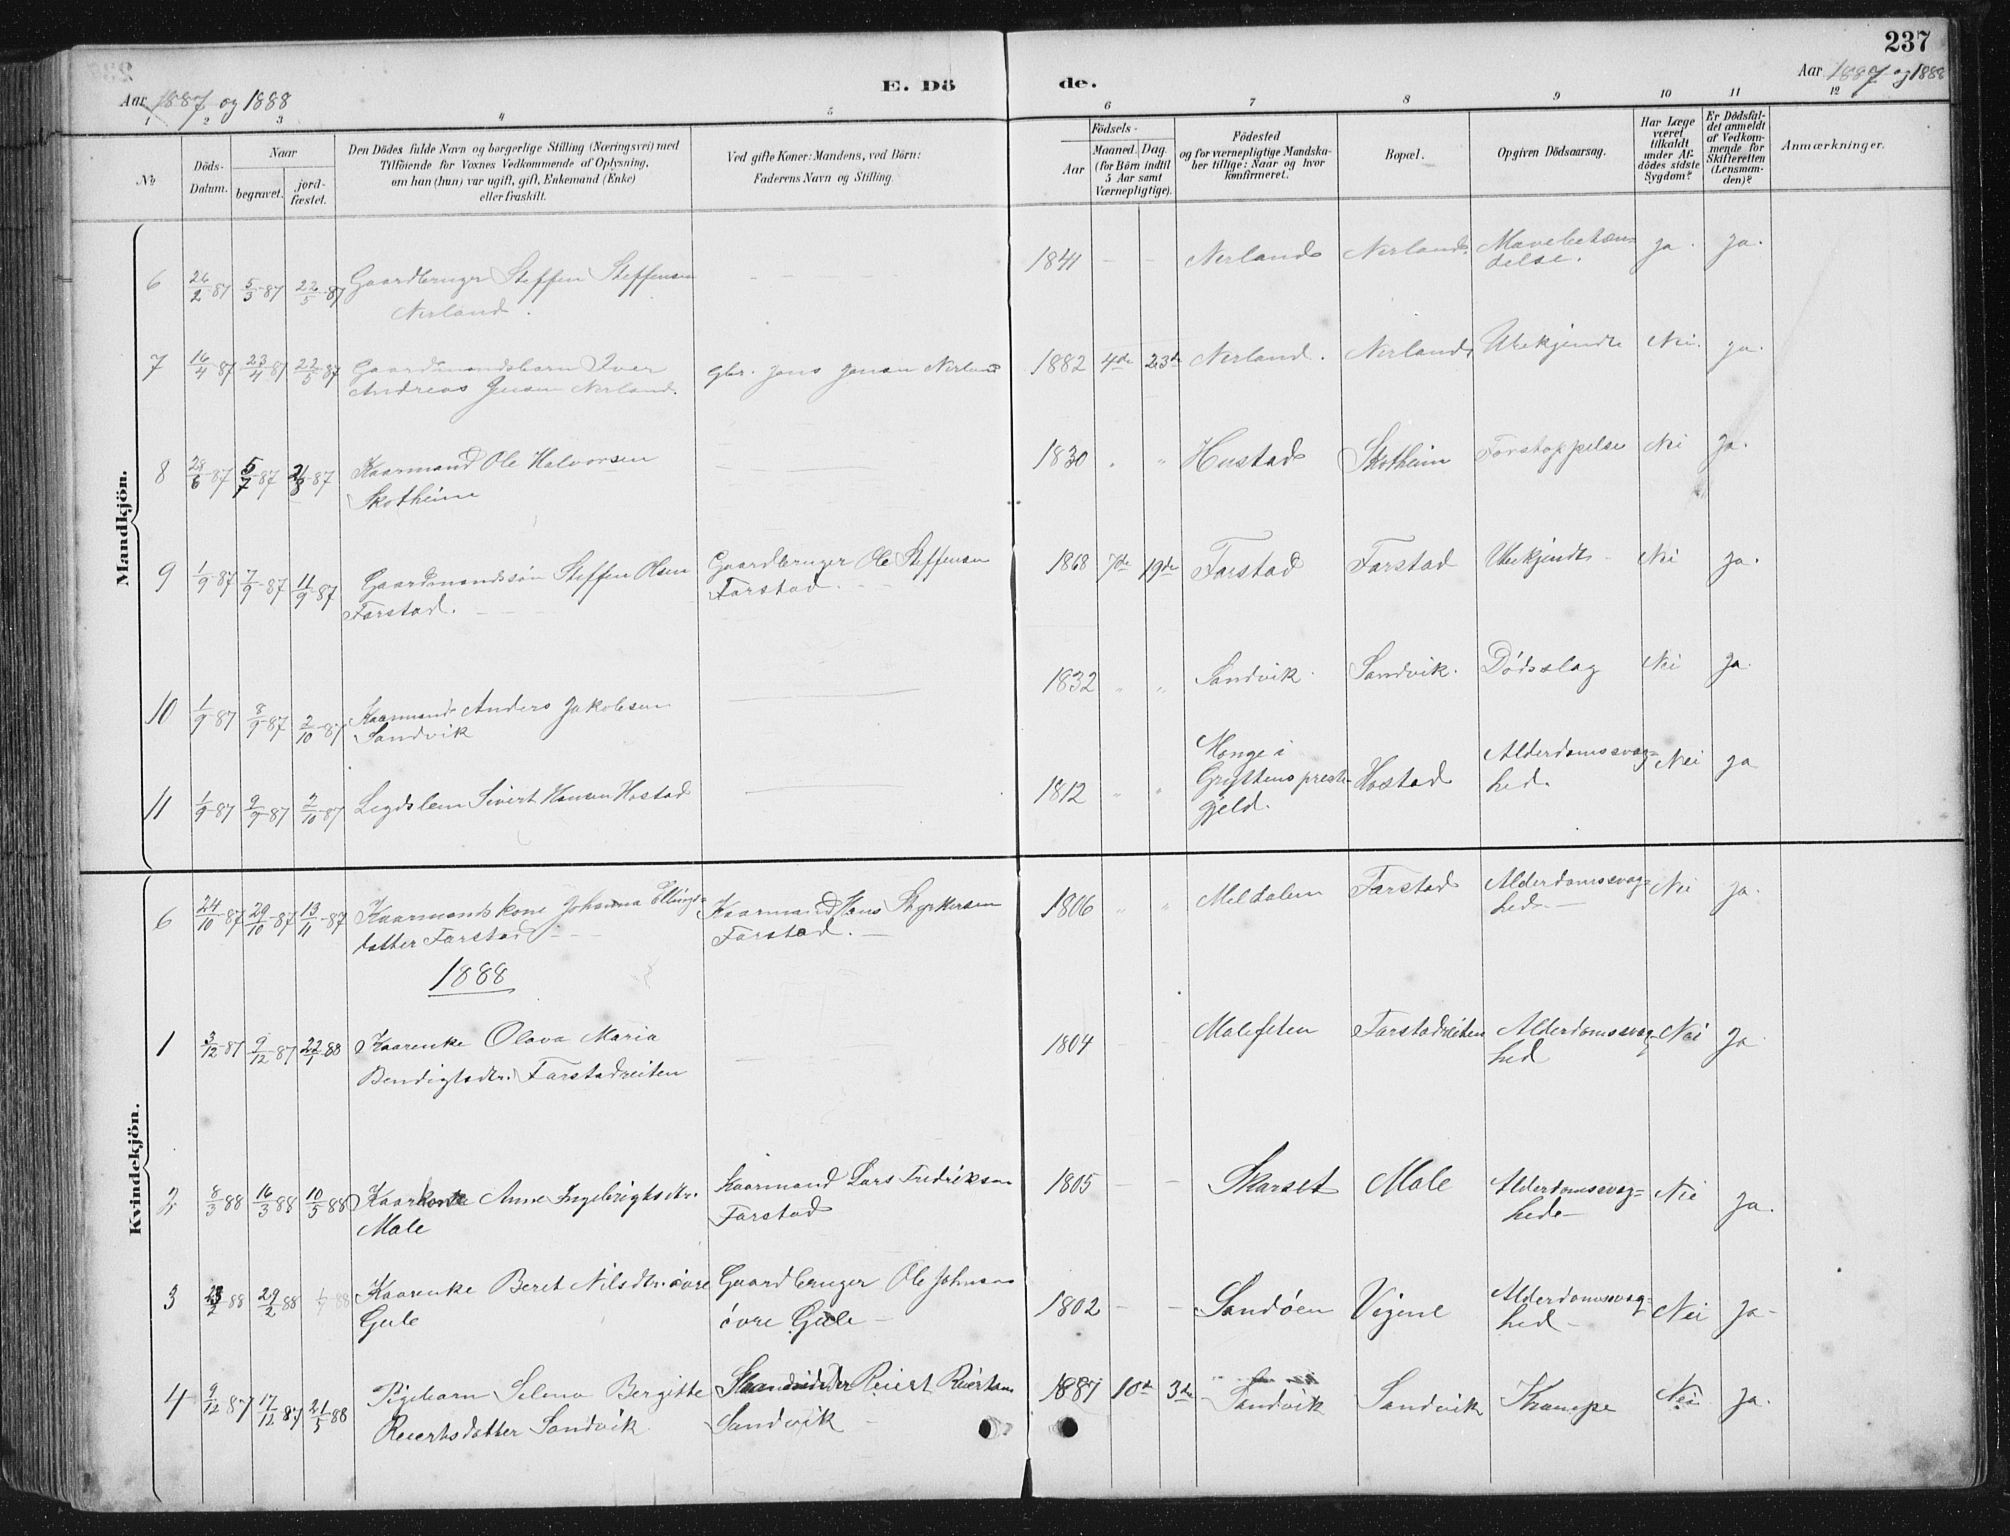 237
Aar 1887 og 1888
E. Dö
de.
Aar 1887 og 1888
1 2 3 4 5 6 7 8 9 10 11 12
No
Döds-
Datum.
Naar
begravet.
jord-
fæstet.
Den Dödes fulde Navn og borgerlige Stilling (Næringsvei) med
Tilföiende for Voxnes Vedkommende af Oplysning,
om han (hun) var ugift, gift, Enkemand (Enke)
eller fraskilt.
Ved gifte Koner: Mandens, ved Börn:
Faderens Navn og Stilling.
Födsels-
Aar
Maaned. Dag.
(for Börn indtil
5 Aar samt
Værnepligtige).
Födested
og for værnepligtige Mandska-
ber tillige: Naar og hvor
konfirmeret.
Bopæl.
Opgiven Dödsaarsag.
Har Læge
været
tilkaldt
under Af-
dödes sidste
Sygdom?
Er Dödsfal-
det anmeldt
af Vedkom-
mende for
Skifteretten
(Lensman-
den)?
Anmærkninger.
Mandkjön.
6 26/2 87 5/3 87 22/5 87 Gaardbruger Steffen Steffensen
Nerland.
1841 Nerland Nerland. Mavebetæn-
delse. ja. ja.
7 16/4 87 23/4 87 22/5 87 Gaardmandsbarn Iver
Andreas Jensen Nerland. gbr. Jens Jensen Nerland 1882 4de 23de Nerland. Nerland Ubekjendt Nei. ja.
8 28/6 87 5/7 87 87 Kaarmand Ole Halvorsen
Skotheim
1830 " " Hustad Skotheim Forstoppelse Nei ja.
9 1/9 87 7/9 87 11/9 87 Gaardmandssön Steffen Olsen
Farstad.
Gaardbruger Ole Steffensen
Farstad. 1868 7de 19de Farstad Farstad Ubekjendt Nei ja.
10 1/9 87 8/9 87 2/10 87 Kaarmand Anders Jakobsen
Sandvik
1832 " " Sandvik. Sandvik. Dödsslag Nei ja.
11 1/9 87 9/9 87 2/10 87 Legdslem Sivert Hansen Hostad
1812 " " Monge i
Gryttens preste-
gjeld. Hostad Alderdomssvag-
hed. Nei ja
Kvindekjön.
6 24/10 87 29/10 87 13/11 87 Kaarmandskone Johanna Ellings-
datter Farstad
Kaarmand Hans Styrkersen
Farstad. 1806 " " Meldalen Farstad Alderdomssvag-
hed. Nei ja.
1888
1 3/12 87 9/12 87 22/1 88 Kaarenke Olava Maria
Bendigtsdtr. Farstadreiten
1804 Malefeten Farstadreiten Alderdomssvag-
hed Nei ja
2 8/3 88 16/3 88 10/5 88 Kaarkone Anne Ingebrigtsdtr.
Male
Kaarmand Lars Fredriksen
Farstad 1805 Skarset Male Alderdomssvag-
hed Nei ja.
3 88 29/2 88 88 Kaarenke Beret Nilsdtr. övre
Gule
Gaardbruger Ole Johnsen
övre Gule 1802 Sandöen Vigene Alderdomssvag-
hed Nei ja
4 9/12 87 17/12 87 21/5 88 Pigebarn Selma Bergitte
Reiertsdatter Sandvik
Reiert Reiertsen
Sandvik 1887 10de 3de Sandvik Sandvik Krampe Nei ja.